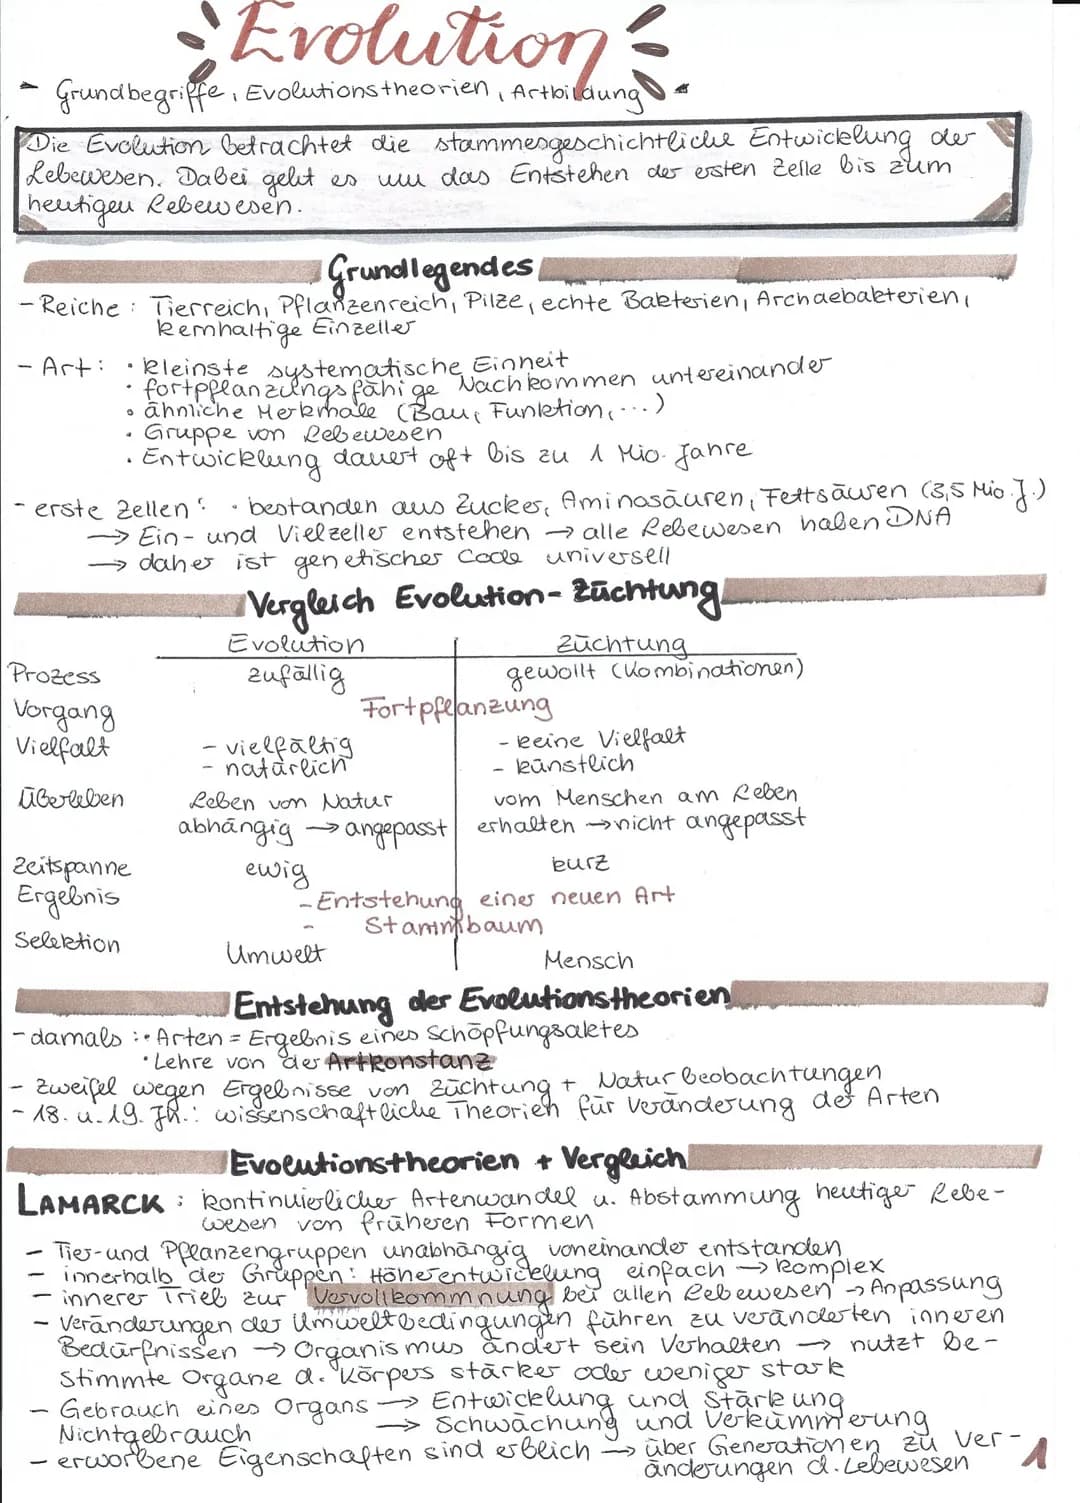 Evolution
- Grundbegriffe, Evolutionstheorien, Artbildung -
Die Evolution betrachtet die stammesgeschichtliche Entwicklung der
Lebewesen. Dabei geht es um das Entstehen der ersten Zelle bis zum
heutigen Lebewesen.
Grundlegendes
- Reiche: Tierreich, Pflanzenreich, Pilze, echte Bakterien, Archaebakterien,
kernhaltige Einzeller
- Art: • kleinste systematische Einheit
• fortpflanzungsfähige Nachkommen untereinander
• ähnliche Merkmale (Bau, Funktion, ...)
• Gruppe von Lebewesen
• Entwicklung dauert oft bis zu 1 Mio. Jahre
- erste Zellen: • bestanden aus Zucker, Aminosäuren, Fettsäuren (3,5 Mio. J.)
→ Ein- und Vielzeller entstehen → alle Lebewesen haben DNA
→ daher ist genetischer Code universell
Vergleich Evolution-Züchtung
Evolution Züchtung
Prozess zufällig gewollt (Kombinationen)
Vorgang Fortpflanzung
Vielfalt - vielfältig - keine Vielfalt
- natürlich - künstlich
Überleben Leben von Natur vom Menschen am Leben
abhängig → angepasst erhalten → nicht angepasst
Zeitspanne ewig kurz
Ergebnis - Entstehung einer neuen Art
- Stammbaum
Selektion Umwelt Mensch
Entstehung der Evolutionstheorien
- damals: • Arten = Ergebnis eines Schöpfungsaktes
• Lehre von der Artkonstanz
- Zweifel wegen Ergebnisse von Züchtung + Naturbeobachtungen
- 18. u. 19. Jh.: wissenschaftliche Theorien für Veränderung der Arten
Evolutionstheorien + Vergleich
LAMARCK: kontinuierlicher Artenwandel u. Abstammung heutiger Lebe-
wesen von früheren Formen
- Tier- und Pflanzengruppen unabhängig voneinander entstanden
- innerhalb der Gruppen: Höherentwickelung einfach → komplex
- innerer Trieb zur Vervollkommnung bei allen Lebewesen → Anpassung
- Veränderungen der Umweltbedingungen führen zu veränderten inneren
Bedürfnissen → Organismus ändert sein Verhalten → nutzt be-
stimmte Organe d. Körpers stärker oder weniger stark
- Gebrauch eines Organs → Entwicklung und Stärkung
Nichtgebrauch → Schwächung und Verkümmerung
- erworbene Eigenschaften sind erblich → über Generationen zu Ver-
änderungen d. Lebewesen
1